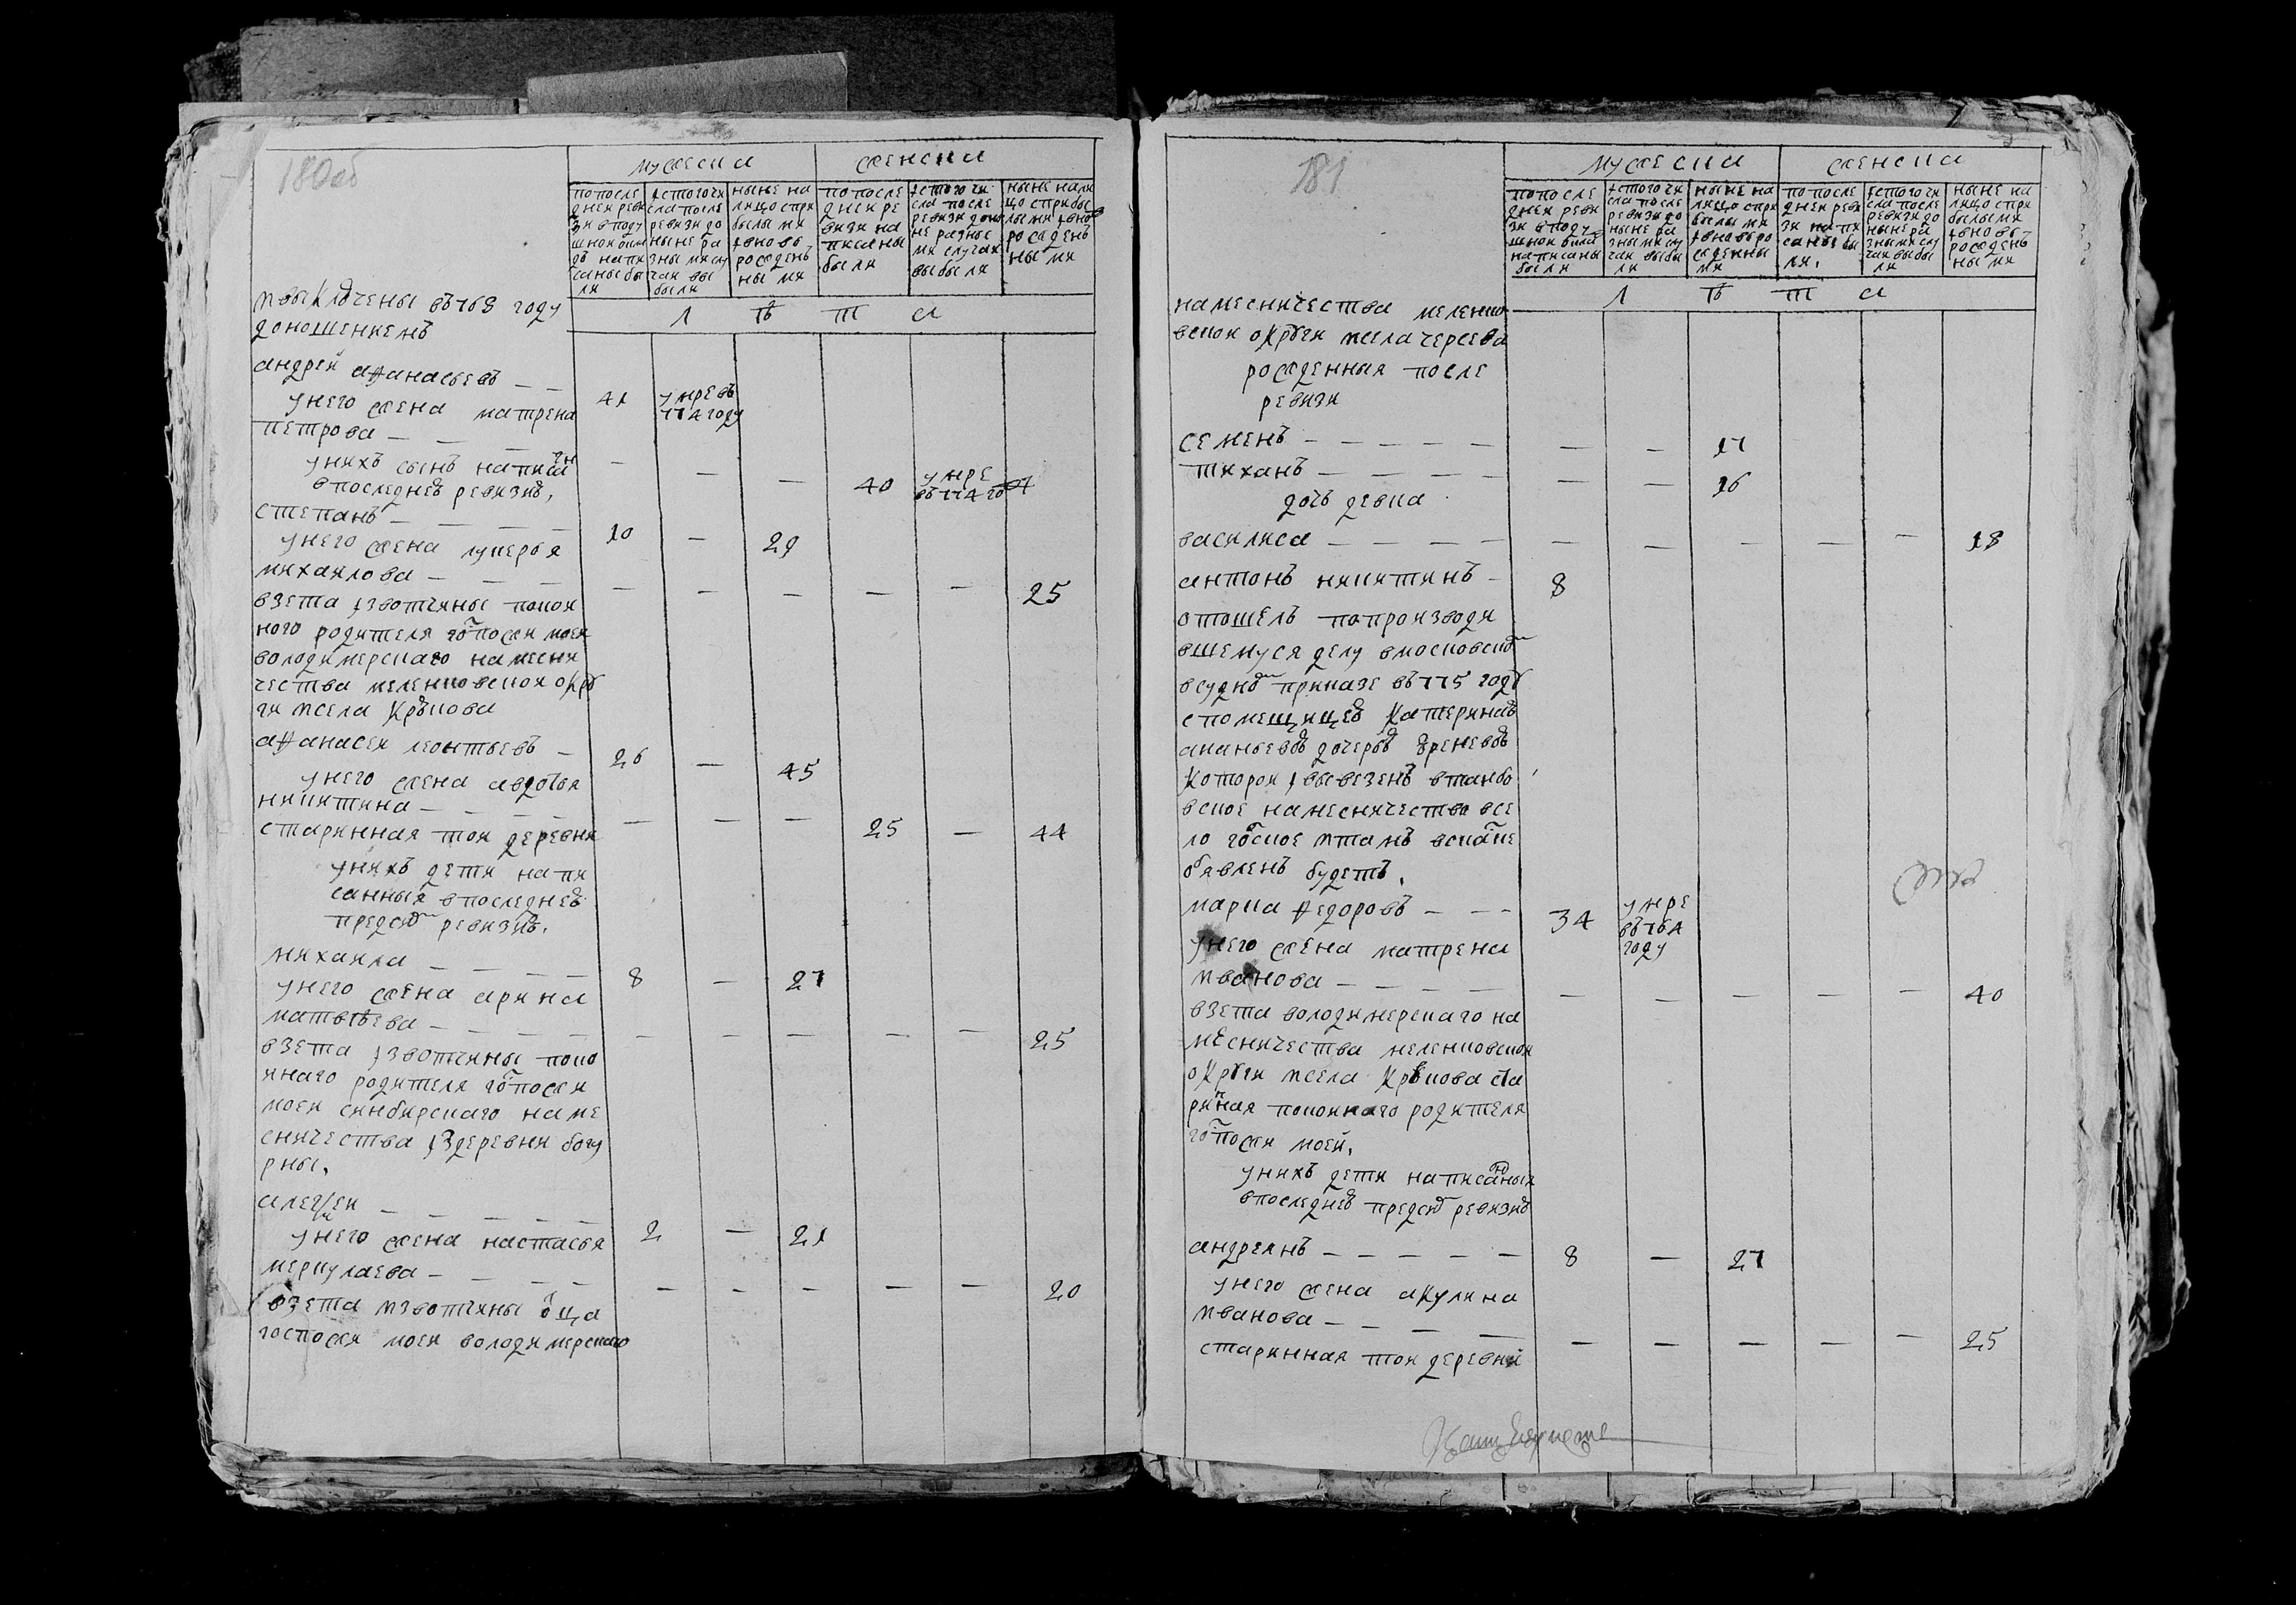 180об
мужеска
женска
по после
дней реви
зи в поду
шной окла
дъ напи
саны бы
ли
ис того чи
сла после
ревизи до
ныне ра
зными слу
чаи вы
были
ныне на
лицо с при
былыми
и вновь
рожденъ
ными
по после
дней ре
визи на
писаны
были
ис того чи
сла после
ревизи до ны
не разны
ми случаи
выбыли
ныне нали
цо с прибы
лыми и вно
рожденъ
ными
л ѣ т а
и выключены въ 769 году
доношениемъ
андрей афанасьевъ — —
41
умре въ
774 году
у него жена матрена
петрова — — —
— — — 40
умре
въ 774 го
у нихъ сынъ написан
в последней ревизи,
степанъ — — — —
10 — 29
у него жена лукерья
михаилова — — —
— — — — — 25
взета из вотчины покои
ного родителя гпожи моеи
володимерскаго намесни
чества меленковской округи
ги и села крюкова
афанасеи леонтьевъ —
26 — 45
у него жена авдотья
никитина — — — —
— — — 25 — 44
старинная той деревни
у нихъ дети напи
санныя в последней
пред сею ревизи.
михаила — — — —
8 — 27
у него жена арина
матвеева — — — —
— — — — — 25
взета из вотчины поко
инаго родителя гпожи
моеи синбирскаго наме
сничества из деревни богу
рны.
алексеи — — — — —
2 — 21
у него жена настасья
меркулаева — — — —
— — — — — 20
взета из вотчины отца
госпожи моеи володимерскаго
181
мужеска
женска
по после
дней реви
зи в поду
шной окла
написаны
были
ис того чи
сла после
ревизи до
ныне ра
зными слу
чаи выбы
ли
ныне на
лицо с при
былыми
и вновь ро
жденны
ми
по после
дней реви
зи напи
саны бы
ли.
ис того чи
сла после
ревизи до
ныне ра
зными слу
чаи выбы
ли
ныне на
лицо с при
былыми
и вновь
рожденъ
ными
л ѣ т а
намесничества меленко
вской округи и села черсева
рожденныя после
ревизи
семенъ — — — — —
— — 17
тиханъ — — — —
— — 16
дочь девка
василиса — — — —
— — — — — 18
антонъ никитинъ —
8
отошелъ по производи
вшемуся делу в московской
в судной приказе въ 775 году
с помещицей катериной
ананьевой дочерью
которой и вывезенъ в танбо
вское намесничество в се
ло и тамъ в сказке
обявленъ будетъ.
марка федоровъ — — —
34
умре
въ 764
году
у него жена матрена
иванова — — — —
— — — — — 40
взета володимерскаго на
месничества меленковской
округи и села крюкова ста
ринная покоинаго родителя
гпожи моей.
у нихъ дети написанныя
в последней пред сею ревизи
андреянъ — — — — —
8 — 27
у него жена акулина
иванова — — — —
— — — — — 25
старинная той деревни